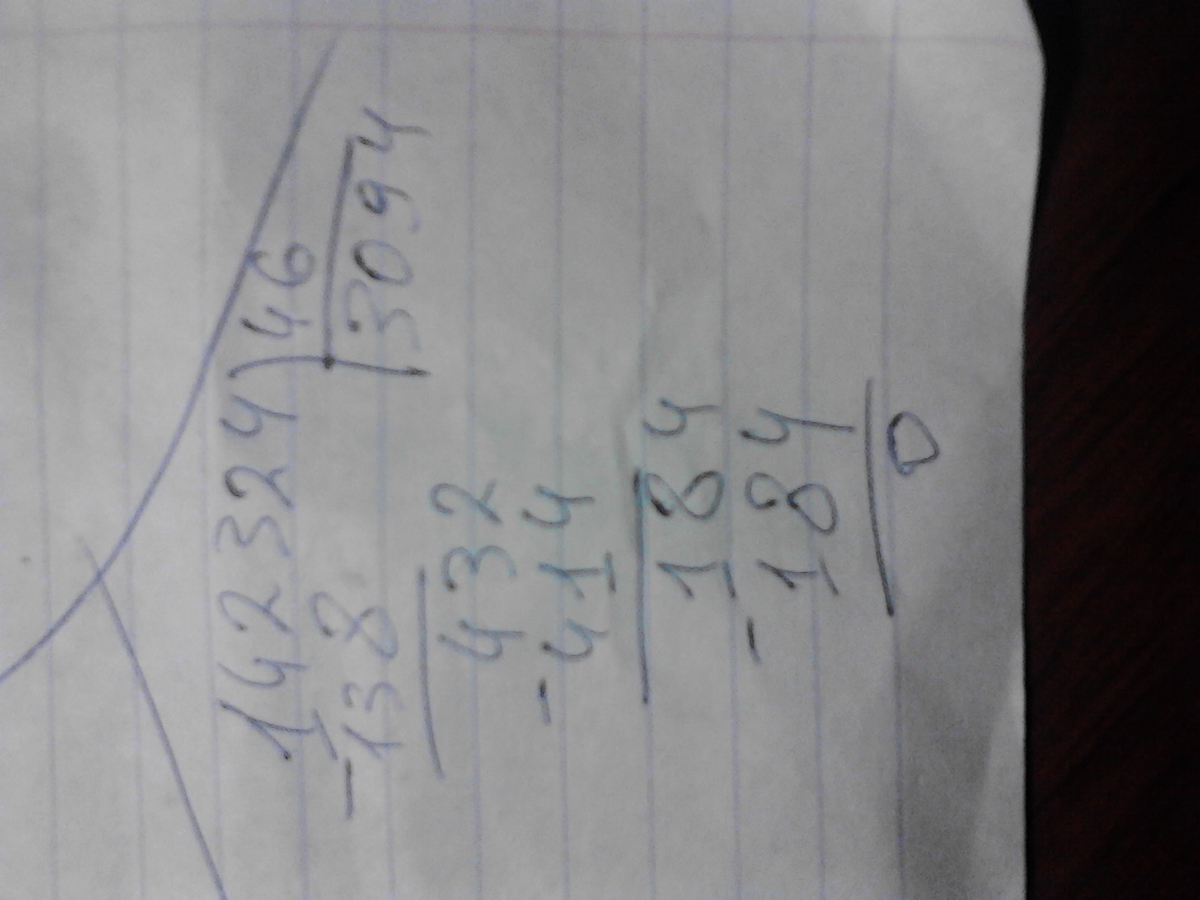 142324 46
-138 3094
432
-414
184
-184
0